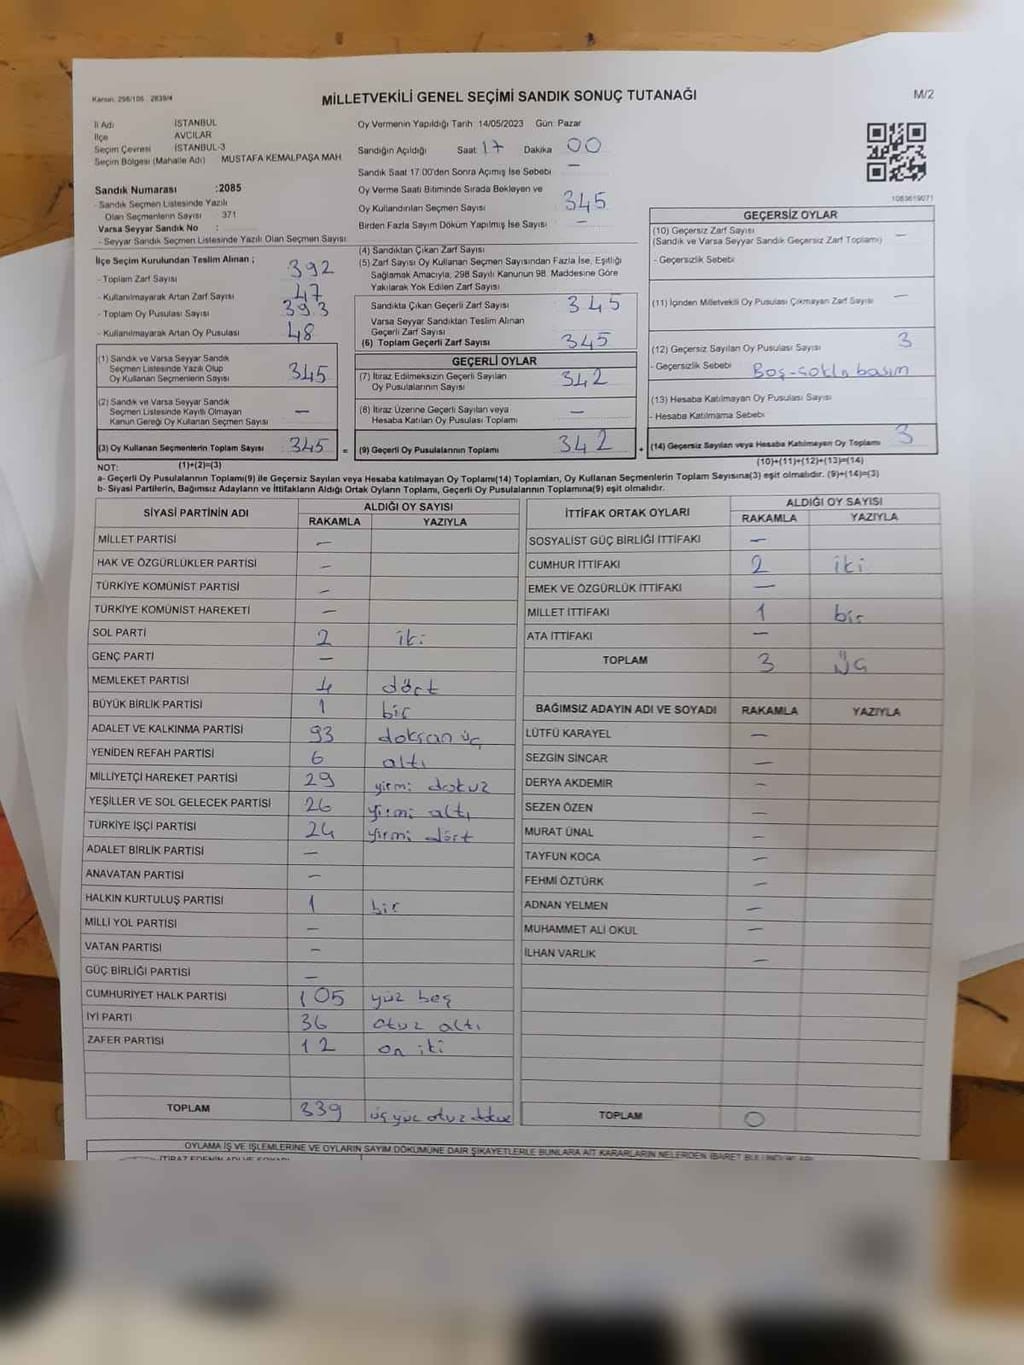 Kanun: 298/105 2839/4
MİLLETVEKİLİ GENEL SEÇİMİ SANDIK SONUÇ TUTANAĞI
M/2
İl Adı İSTANBUL
İlçe AVCILAR
Seçim Çevresi İSTANBUL-3
Seçim Bölgesi (Mahalle Adı) MUSTAFA KEMALPAŞA MAH.
Sandık Numarası :2085
- Sandık Seçmen Listesinde Yazılı
Olan Seçmenlerin Sayısı 371
Varsa Seyyar Sandık No :
- Seyyar Sandık Seçmen Listesinde Yazılı Olan Seçmen Sayısı
Oy Vermenin Yapıldığı Tarih: 14/05/2023 Gün: Pazar
Sandığın Açıldığı Saat 17 Dakika 00
Sandık Saat 17:00'den Sonra Açılmış İse Sebebi —
Oy Verme Saati Bitiminde Sırada Bekleyen ve
Oy Kullandırılan Seçmen Sayısı 345
Birden Fazla Sayım Döküm Yapılmış İse Sayısı —
1083619071
İlçe Seçim Kurulundan Teslim Alınan ;
- Toplam Zarf Sayısı 392
- Kullanılmayarak Artan Zarf Sayısı 47
- Toplam Oy Pusulası Sayısı 393
- Kullanılmayarak Artan Oy Pusulası 48
(1) Sandık ve Varsa Seyyar Sandık
Seçmen Listesinde Yazılı Olup
Oy Kullanan Seçmenlerin Sayısı 345
(2) Sandık ve Varsa Seyyar Sandık
Seçmen Listesinde Kayıtlı Olmayan
Kanun Gereği Oy Kullanan Seçmen Sayısı —
(3) Oy Kullanan Seçmenlerin Toplam Sayısı 345 =
(1)+(2)=(3)
(4) Sandıktan Çıkan Zarf Sayısı
(5) Zarf Sayısı Oy Kullanan Seçmen Sayısından Fazla İse, Eşitliği
Sağlamak Amacıyla, 298 Sayılı Kanunun 98. Maddesine Göre
Yakılarak Yok Edilen Zarf Sayısı
Sandıkta Çıkan Geçerli Zarf Sayısı 345
Varsa Seyyar Sandıktan Teslim Alınan
Geçerli Zarf Sayısı
(6) Toplam Geçerli Zarf Sayısı 345
GEÇERLİ OYLAR
(7) İtiraz Edilmeksizin Geçerli Sayılan
Oy Pusulalarının Sayısı 342
(8) İtiraz Üzerine Geçerli Sayılan veya
Hesaba Katılan Oy Pusulası Toplamı —
(9) Geçerli Oy Pusulalarının Toplamı 342 +
GEÇERSİZ OYLAR
(10) Geçersiz Zarf Sayısı —
(Sandık ve Varsa Seyyar Sandık Geçersiz Zarf Toplamı)
- Geçersizlik Sebebi
(11) İçinden Milletvekili Oy Pusulası Çıkmayan Zarf Sayısı —
(12) Geçersiz Sayılan Oy Pusulası Sayısı 3
- Geçersizlik Sebebi Boş-çokla basım
(13) Hesaba Katılmayan Oy Pusulası Sayısı
- Hesaba Katılmama Sebebi
(14) Geçersiz Sayılan veya Hesaba Katılmayan Oy Toplamı 3
(10)+(11)+(12)+(13)=(14)
NOT:
a- Geçerli Oy Pusulalarının Toplamı(9) ile Geçersiz Sayılan veya Hesaba katılmayan Oy Toplamı(14) Toplamları, Oy Kullanan Seçmenlerin Toplam Sayısına(3) eşit olmalıdır. (9)+(14)=(3)
b- Siyasi Partilerin, Bağımsız Adayların ve İttifakların Aldığı Ortak Oyların Toplamı, Geçerli Oy Pusulalarının Toplamına(9) eşit olmalıdır.
SİYASİ PARTİNİN ADI ALDIĞI OY SAYISI
RAKAMLA YAZIYLA
MİLLET PARTİSİ —
HAK VE ÖZGÜRLÜKLER PARTİSİ —
TÜRKİYE KOMÜNİST PARTİSİ —
TÜRKİYE KOMÜNİST HAREKETİ —
SOL PARTİ 2 iki
GENÇ PARTİ —
MEMLEKET PARTİSİ 4 dört
BÜYÜK BİRLİK PARTİSİ 1 bir
ADALET VE KALKINMA PARTİSİ 93 doksan üç
YENİDEN REFAH PARTİSİ 6 altı
MİLLİYETÇİ HAREKET PARTİSİ 29 yirmi dokuz
YEŞİLLER VE SOL GELECEK PARTİSİ 26 yirmi altı
TÜRKİYE İŞÇİ PARTİSİ 24 yirmi dört
ADALET BİRLİK PARTİSİ —
ANAVATAN PARTİSİ —
HALKIN KURTULUŞ PARTİSİ 1 bir
MİLLİ YOL PARTİSİ —
VATAN PARTİSİ —
GÜÇ BİRLİĞİ PARTİSİ —
CUMHURİYET HALK PARTİSİ 105 yüz beş
İYİ PARTİ 36 otuz altı
ZAFER PARTİSİ 12 on iki
TOPLAM 339 üç yüz otuz dokuz
İTTİFAK ORTAK OYLARI ALDIĞI OY SAYISI
RAKAMLA YAZIYLA
SOSYALİST GÜÇ BİRLİĞİ İTTİFAKI —
CUMHUR İTTİFAKI 2 iki
EMEK VE ÖZGÜRLÜK İTTİFAKI —
MİLLET İTTİFAKI 1 bir
ATA İTTİFAKI —
TOPLAM 3 üç
BAĞIMSIZ ADAYIN ADI VE SOYADI RAKAMLA YAZIYLA
LÜTFÜ KARAYEL —
SEZGİN SİNCAR —
DERYA AKDEMİR —
SEZEN ÖZEN —
MURAT ÜNAL —
TAYFUN KOCA —
FEHMİ ÖZTÜRK —
ADNAN YELMEN —
MUHAMMET ALİ OKUL —
İLHAN VARLIK —
TOPLAM 0
OYLAMA İŞ VE İŞLEMLERİNE VE OYLARIN SAYIM DÖKÜMÜNE DAİR ŞİKAYETLERLE BUNLARA AİT KARARLARIN NELERDEN İBARET